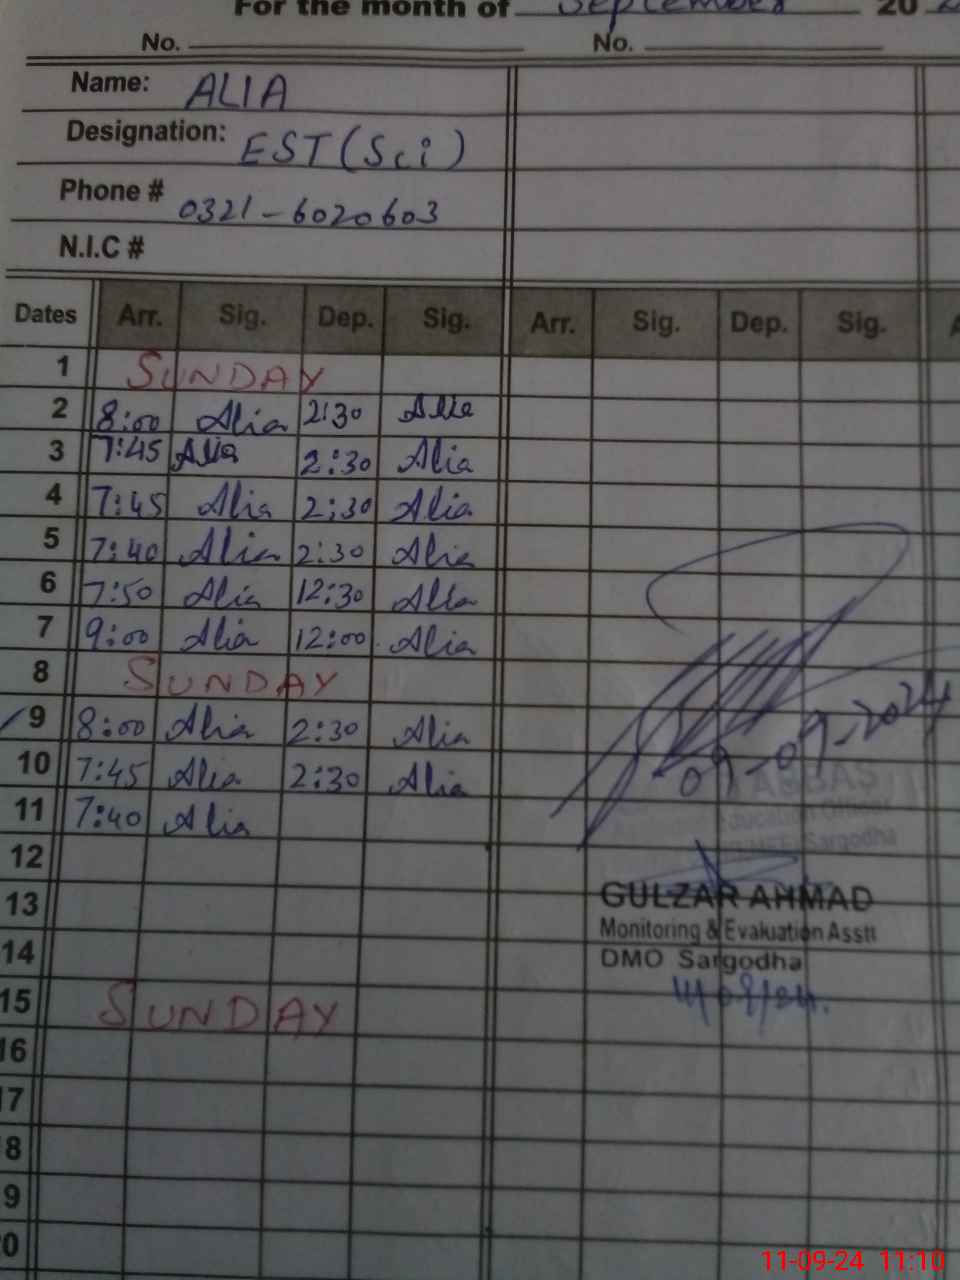 For the month of September 20
No. No.
Name: ALIA
Designation: EST (Sci)
Phone # 0321-6020603
N.I.C #
Dates Arr. Sig. Dep. Sig. Arr. Sig. Dep. Sig.
1 SUNDAY
2 8:00 Alia 2:30 Alia
3 7:45 Alia 2:30 Alia
4 7:45 Alia 2:30 Alia
5 7:40 Alia 2:30 Alia
6 7:50 Alia 12:30 Alia
7 9:00 Alia 12:00 Alia
8 SUNDAY
9 8:00 Alia 2:30 Alia
09-09-2024
10 7:45 Alia 2:30 Alia
ABBAS
11 7:40 Alia
Education Officer
Sargodha
12
13
GULZAR AHMAD
Monitoring & Evaluation Asstt
14
DMO Sargodha
15 SUNDAY
16
17
18
19
20
11-09-24 11:10